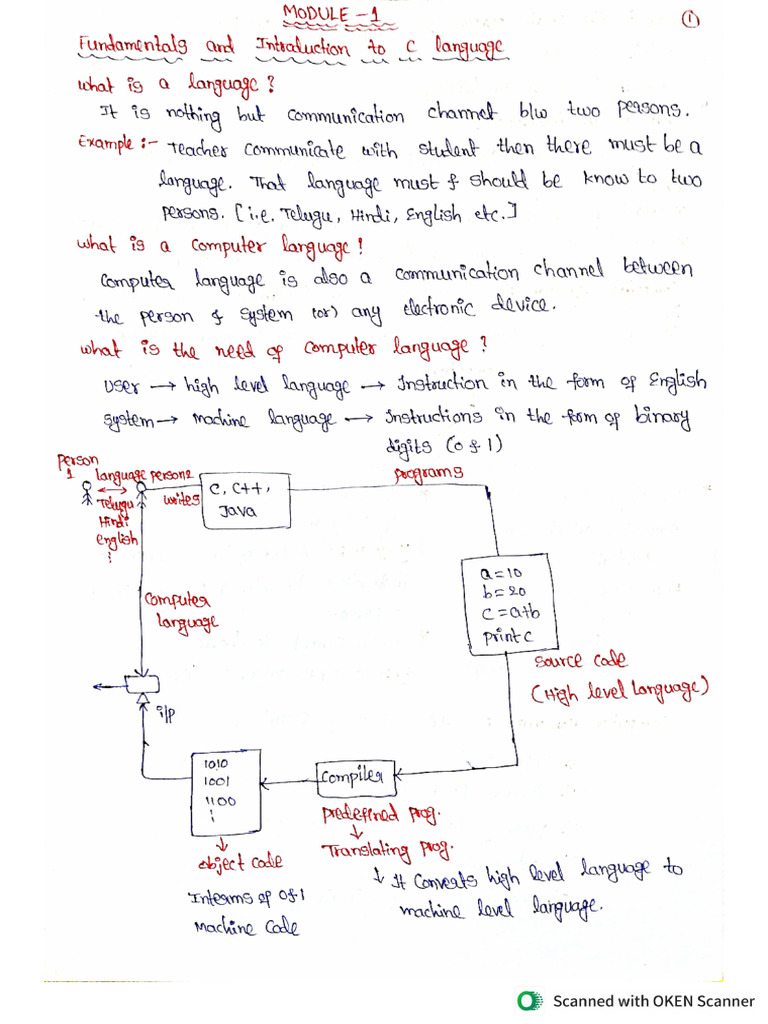 MODULE - 1
①
Fundamentals and Introduction to C language
what is a language ?
It is nothing but communication channel b/w two persons.
Example :- Teacher communicate with student then there must be a
language. That language must & should be know to two
persons. [i.e. Telugu, Hindi, English etc.]
what is a computer language !
Computer language is also a communication channel between
the person & system (or) any electronic device.
what is the need of computer language ?
User → high level language → Instruction in the form of English
system → machine language → Instructions in the form of binary
digits (0 & 1)
person
1
language
person2
writes
C, C++,
Java
programs
Telugu
Hindi
english
a = 10
b = 20
c = a+b
print c
computer
language
source code
(High level language)
i/p
1010
1001
1100
compiler
predefined prog.
↓
Translating prog.
↓ It converts high level language to
machine level language.
↓
object code
Interms of 0&1
Machine Code
Scanned with OKEN Scanner